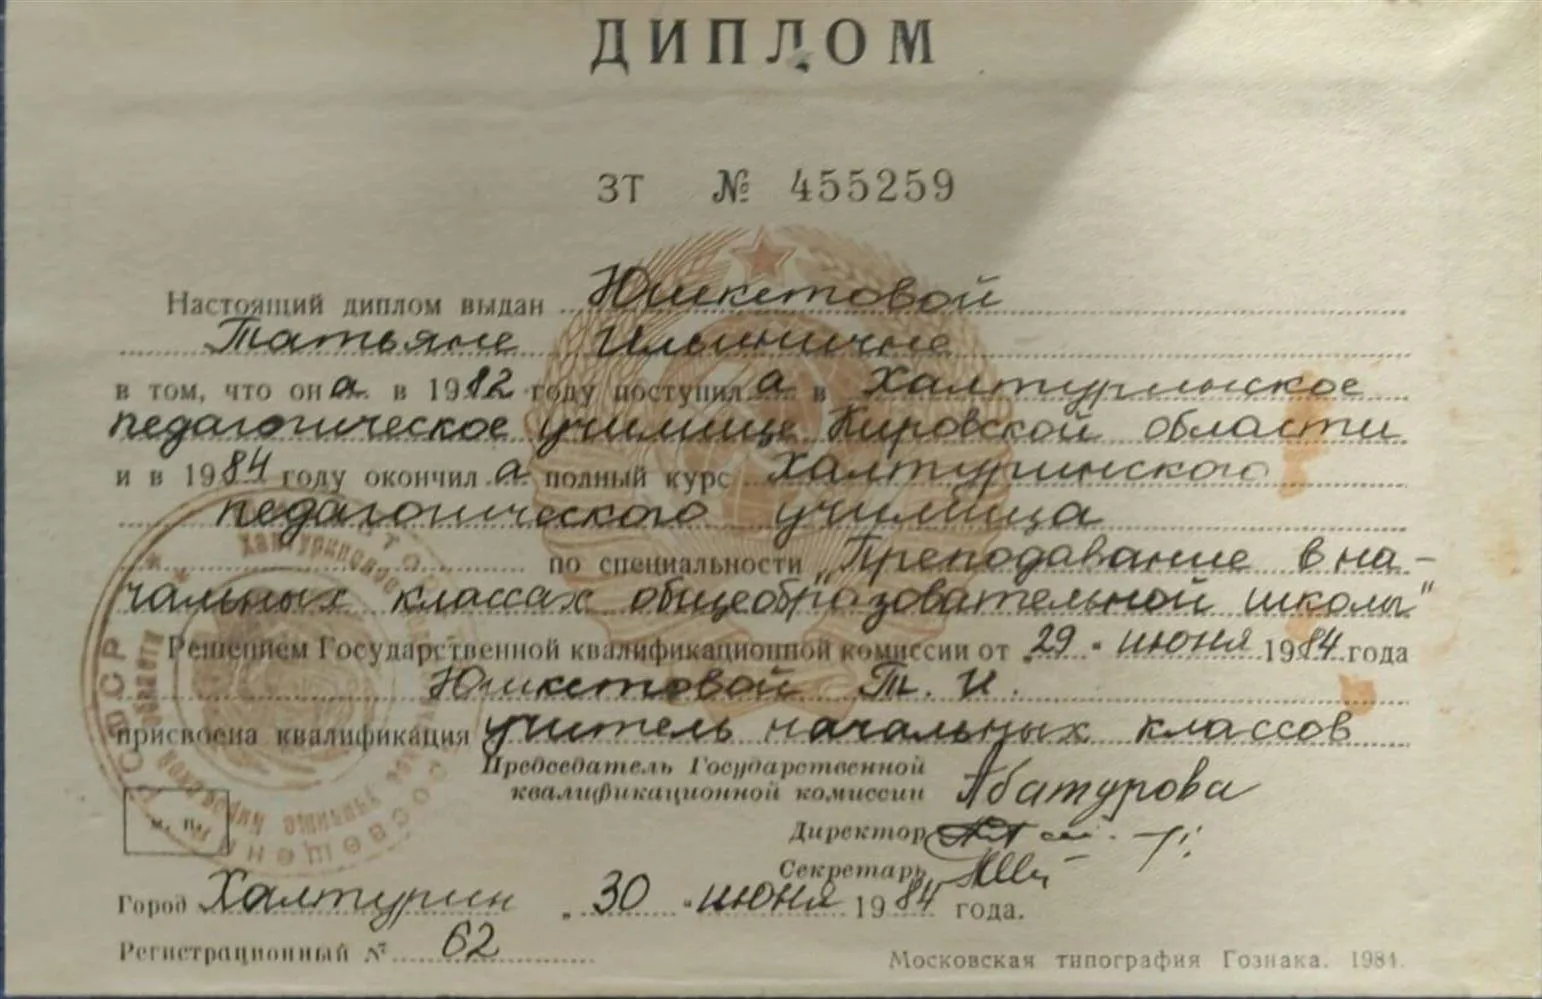 ДИПЛОМ
ЗТ № 455259
Настоящий диплом выдан Юшкетовой
Татьяне Ильиничне
в том, что она в 1982 году поступила в Халтуринское
педагогическое училище Кировской области
и в 1984 году окончила полный курс Халтуринского
педагогического училища
по специальности „Преподавание в на-
чальных классах общеобразовательной школы"
Решением Государственной квалификационной комиссии от „29" июня 1984 года
Юшкетовой Т. И.
присвоена квалификация учитель начальных классов
Председатель Государственной
квалификационной комиссии Абатурова
Директор
Секретарь
м. п.
Город Халтурин „30" июня 1984 года.
Регистрационный № 62
Московская типография Гознака. 1984.